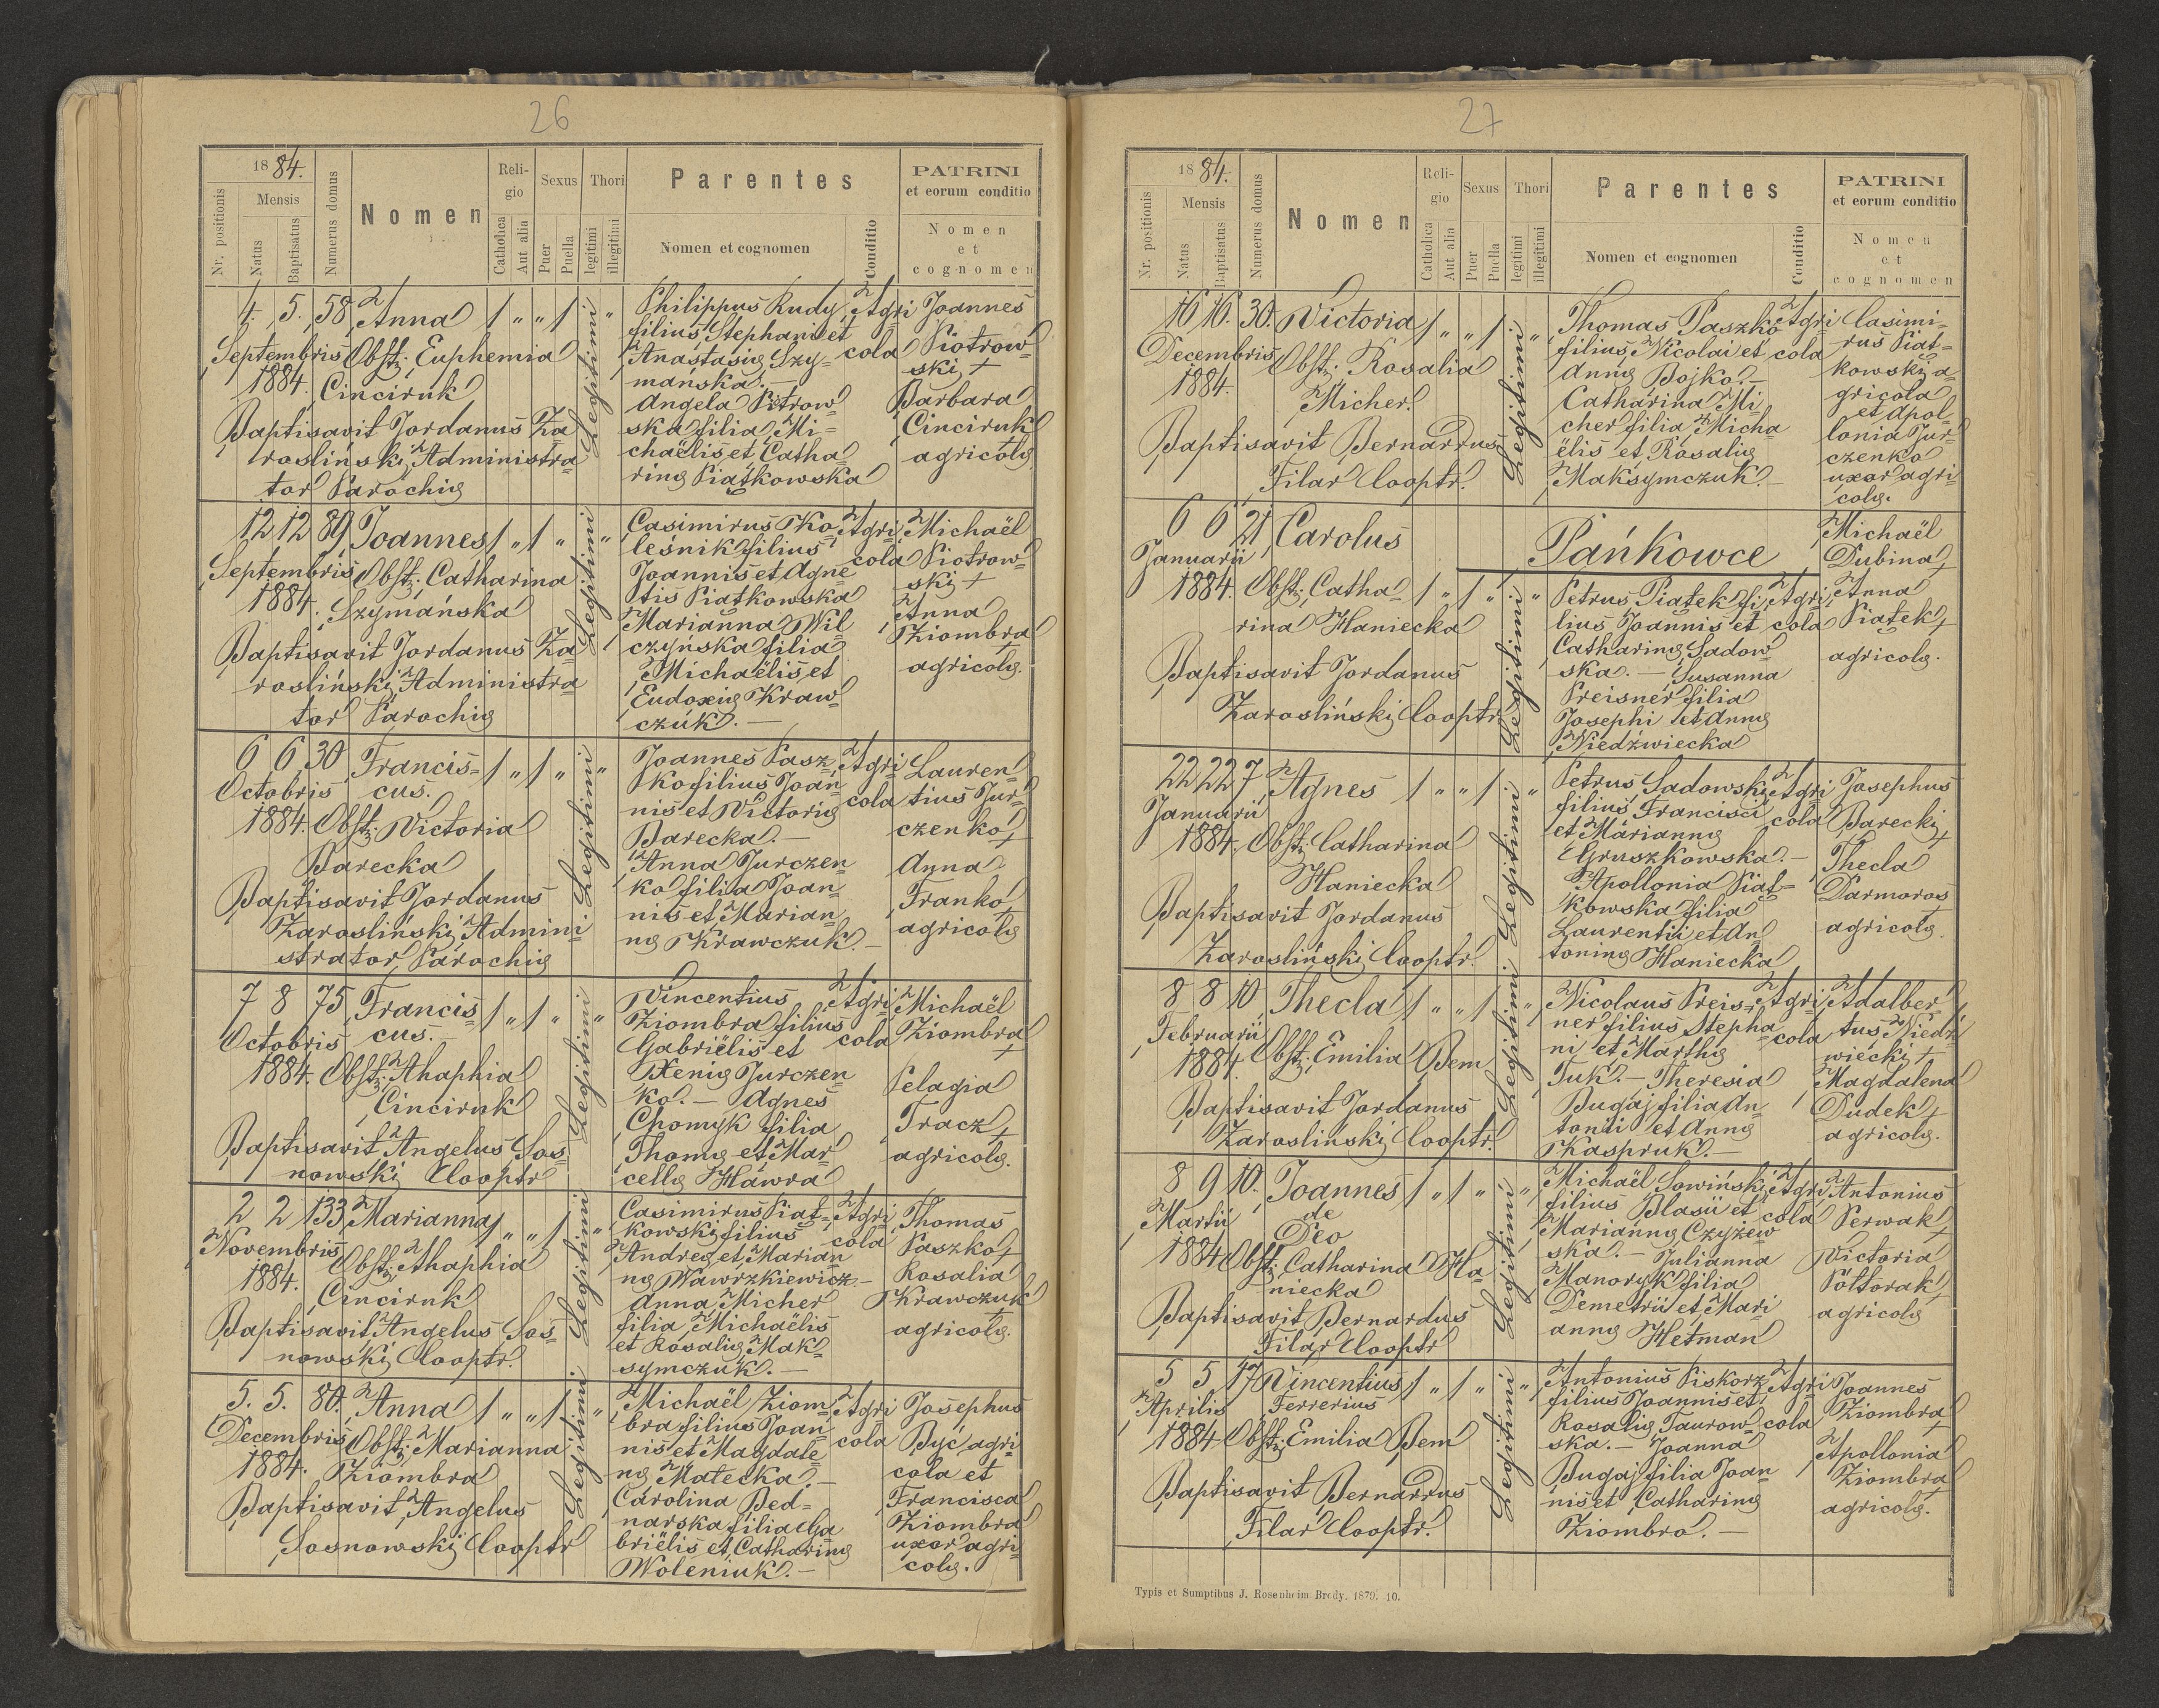 26
1884.
Nr. positionis
Mensis
Natus
Baptisatus
Numerus domus
Nomen
Religio
Catholica
Aut alia
Sexus
Puer
Puella
Thori
legitimi
illegitimi
Parentes
Nomen et cognomen
Conditio
PATRINI
et eorum conditio
Nomen
et
cognomen
4. 5. 58 Anna / " " / Legitimi "
Septembris Obst: Euphemia
1884. Cinciruk
Baptisavit Jordanus Za
roslinski Administra
tor Parochiæ
Philippus Rudy
filius Stephani et
Anastasiæ Szy-
mańska. —
Angela Piotrow
ska filia Mi=
chaëlis et Catha=
rinæ Piątkowska
Agri
cola
Joannes
Piotrow=
ski, +
Barbara
Cinciruk
agricolæ
12 12 89 Joannes / " / " Legitimi "
Septembris Obst: Catharina
1884. Szymańska
Baptisavit Jordanus Za=
rosliński Administra
tor Parochiæ
Casimirus Ko=
leśnik filius
Joannis et Agne
tis Piątkowska
Marianna Wil
czyńska filia
Michaëlis et
Eudoxiæ Kraw=
czuk. —
Agri
cola
Michaël
Piotrow=
ski +
Anna
Ziombra
agricolæ.
6 6 30 Francis= / " / " Legitimi "
Octobris cus.
1884. Obst: Victoria
Barecka
Baptisavit Jordanus
Zarosliński Admini
strator Parochiæ
Joannes Pasz
ko filius Joan
nis et Victoriæ
Barecka. —
Anna Jurczen
ko filia Joan=
nis et Marian=
næ Krawczuk. —
Agri
cola
Lauren=
tius Jur=
czenko +
Anna
Franko
agricolæ
7 8 75 Francis= / " / " Legitimi "
Octobris cus.
1884. Obst: Ahaphia
Cinciruk
Baptisavit Angelus Sos=
nowski Cooptr
Vincentius
Ziombra filius
Gabriëlis et
Xeniæ Jurczen
ko. — Agnes
Chomyk filia
Thomæ et Mar
cellæ Hawra
Agri=
cola
Michaël
Ziombra
+
Pelagia
Tracz +
agricolæ.
2 2 133 Marianna / " " / Legitimi "
Novembris Obst: Ahaphia
1884. Cinciruk
Baptisavit Angelus Sos=
nowski Cooptr.
Casimirus Piąt=
kowski filius
Andreæ et Marian
næ Wawrzkiewicz —
Anna Micher
filia Michaëlis
et Rosaliæ Mak=
symczuk. —
Agri
cola
Thomas
Paszko +
Rosalia
Krawczuk
agricolæ.
5. 5. 80. Anna / " " / Legitimi "
Decembris Obst: Marianna
1884. Ziombra
Baptisavit Angelus
Sosnowski Cooptr
Michaël Ziom
bra filius Joan
nis et Magdale
næ Matecka. —
Carolina Bed=
narska filia Ga
briëlis et Catharinæ
Woleniuk. —
Agri
cola
Josephus
Być agri=
cola et
Francisca
Ziombra
uxor agri=
colæ.
27
1884.
Nr. positionis
Mensis
Natus
Baptisatus
Numerus domus
Nomen
Religio
Catholica
Aut alia
Sexus
Puer
Puella
Thori
legitimi
illegitimi
Parentes
Nomen et cognomen
Conditio
PATRINI
et eorum conditio
Nomen
et
cognomen
16 16. 30. Victoria / " " / Legitimi "
Decembris Obst: Rosalia
1884. Micher.
Baptisavit Bernardus
Filar Cooptr.
Thomas Paszko
filius Nicolai et
Annæ Bojko. —
Catharina Mi=
cher filia Micha
ëlis et Rosaliæ
Maksymczuk. —
Agri
cola
Casimi=
rus Piąt=
kowski a=
gricola
et Apol
lonia Jur=
czenko
uxor agri=
colæ.
Pańkowce
6 6 21 Carolus
Januarii
1884. Obst: Catha= / " / " Legitimi "
rina Haniecka
Baptisavit Jordanus
Zarosliński Cooptr.
Petrus Piątek fi=
lius Joannis et
Catharinæ Sadow
ska. — Susanna
Preisner filia
Josephi et Annæ
Niedźwiecka
Agri
cola
Michaël
Dubina +
Anna
Piątek +
agricolæ.
22 22 7 Agnes / " " / Legitimi "
Januarii
1884. Obst: Catharina
Haniecka
Baptisavit Jordanus
Zarosliński Cooptr.
Petrus Sadowski
filius Francisci
et Mariannæ
Gruszkowska. —
Apollonia Piąt=
kowska filia
Laurentii et An
toninæ Haniecka
Agri
cola
Josephus
Barecki +
Thecla
Darmoros
+
agricolæ.
8 8 10 Thecla / " " / Legitimi "
Februarii
1884. Obst: Emilia Bem
Baptisavit Jordanus
Zarosliński Cooptr.
Nicolaus Preis=
ner filius Stepha
ni et Marthæ
Tuk. — Theresia
Bugaj filia An
tonii et Annæ
Kaspruk. —
Agri
cola
Adalber
tus Niedź
wiecki +
Magdalena
Dudek +
agricolæ.
8 9 10. Joannes / " / " Legitimi "
Martii de
Deo
1884 Obst: Catharina Ha=
niecka
Baptisavit Bernardus
Filar Cooptr
Michaël Sowiński
filius Blasii et
Mariannæ Czyżew
ska. — Julianna
Manoryk filia
Demetrii et Mari
annæ Hetman
Agri
cola
Antonius
Perwak +
Victoria
Półtorak +
agricolæ
5 5 17 Vincentius / " / " Legitimi "
Aprilis Ferrerius
1884 Obst: Emilia Bem
Baptisavit Bernardus
Filar Cooptr.
Antonius Piskorz
filius Joannis et
Rosaliæ Taurow=
ska. — Joanna
Bugaj filia Joan
nis et Catharinæ
Ziombro. —
Agri
cola
Joannes
Ziombra
+
Apollonia
Ziombra
agricolæ.
Typis et Sumptibus J. Rosenheim Brody. 1879. 10.